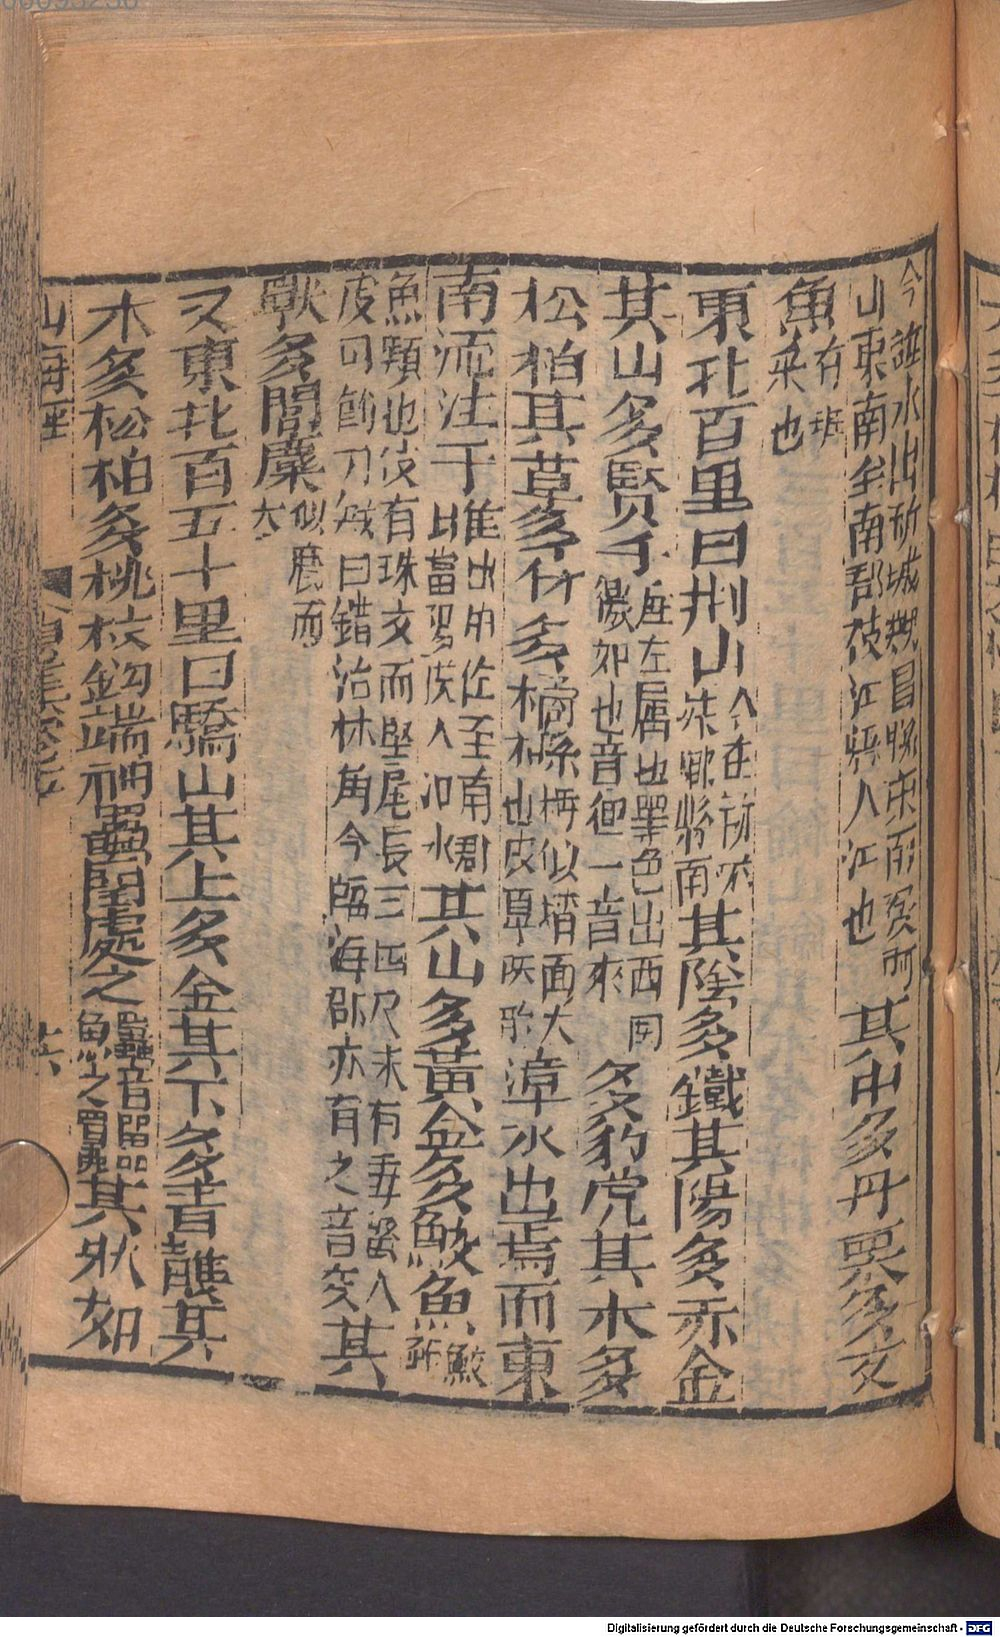 今雎水出新城魏昌縣東南發阿
山東南至南郡枝江縣入江也其中多丹粟多文
魚有斑采也
東北百里曰荊山今在新城沭鄉縣南其陰多鐵其陽多赤金
其山多犛牛旄牛屬也黑色出西南徼外也音貍一音來多豹虎其木多
松柏其草多竹多橘櫾櫾似橘而大也皮厚味酸漳水出焉而東
南流注于雎出荊山至南郡當陽縣入沮水其山多黃金多鮫魚鮫鮒
魚類也皮有珠文而堅尾長三四尺末有毒螫人
皮可飾刀劍口錯治材角今臨海郡亦有之音交其
獸多閭麋似鹿而大
又東北百五十里曰驕山其上多金其下多青雘其
木多松柏多桃枝鉤端神䰠圍處之䰠音鼉魚之鼉其狀如
山海經 六
Digitalisierung gefördert durch die Deutsche Forschungsgemeinschaft - DFG